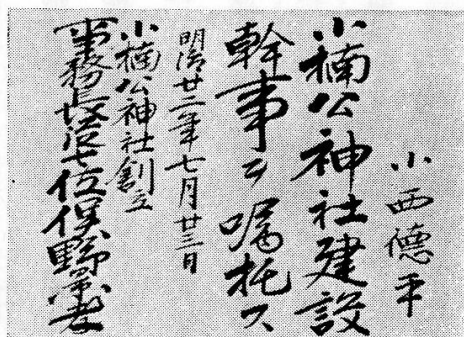 小西德平
小楠公神社建設
幹事ヲ嘱托ス
明治廿二年七月廿三日
小楠公神社創立
事務長従七位俣野景孝